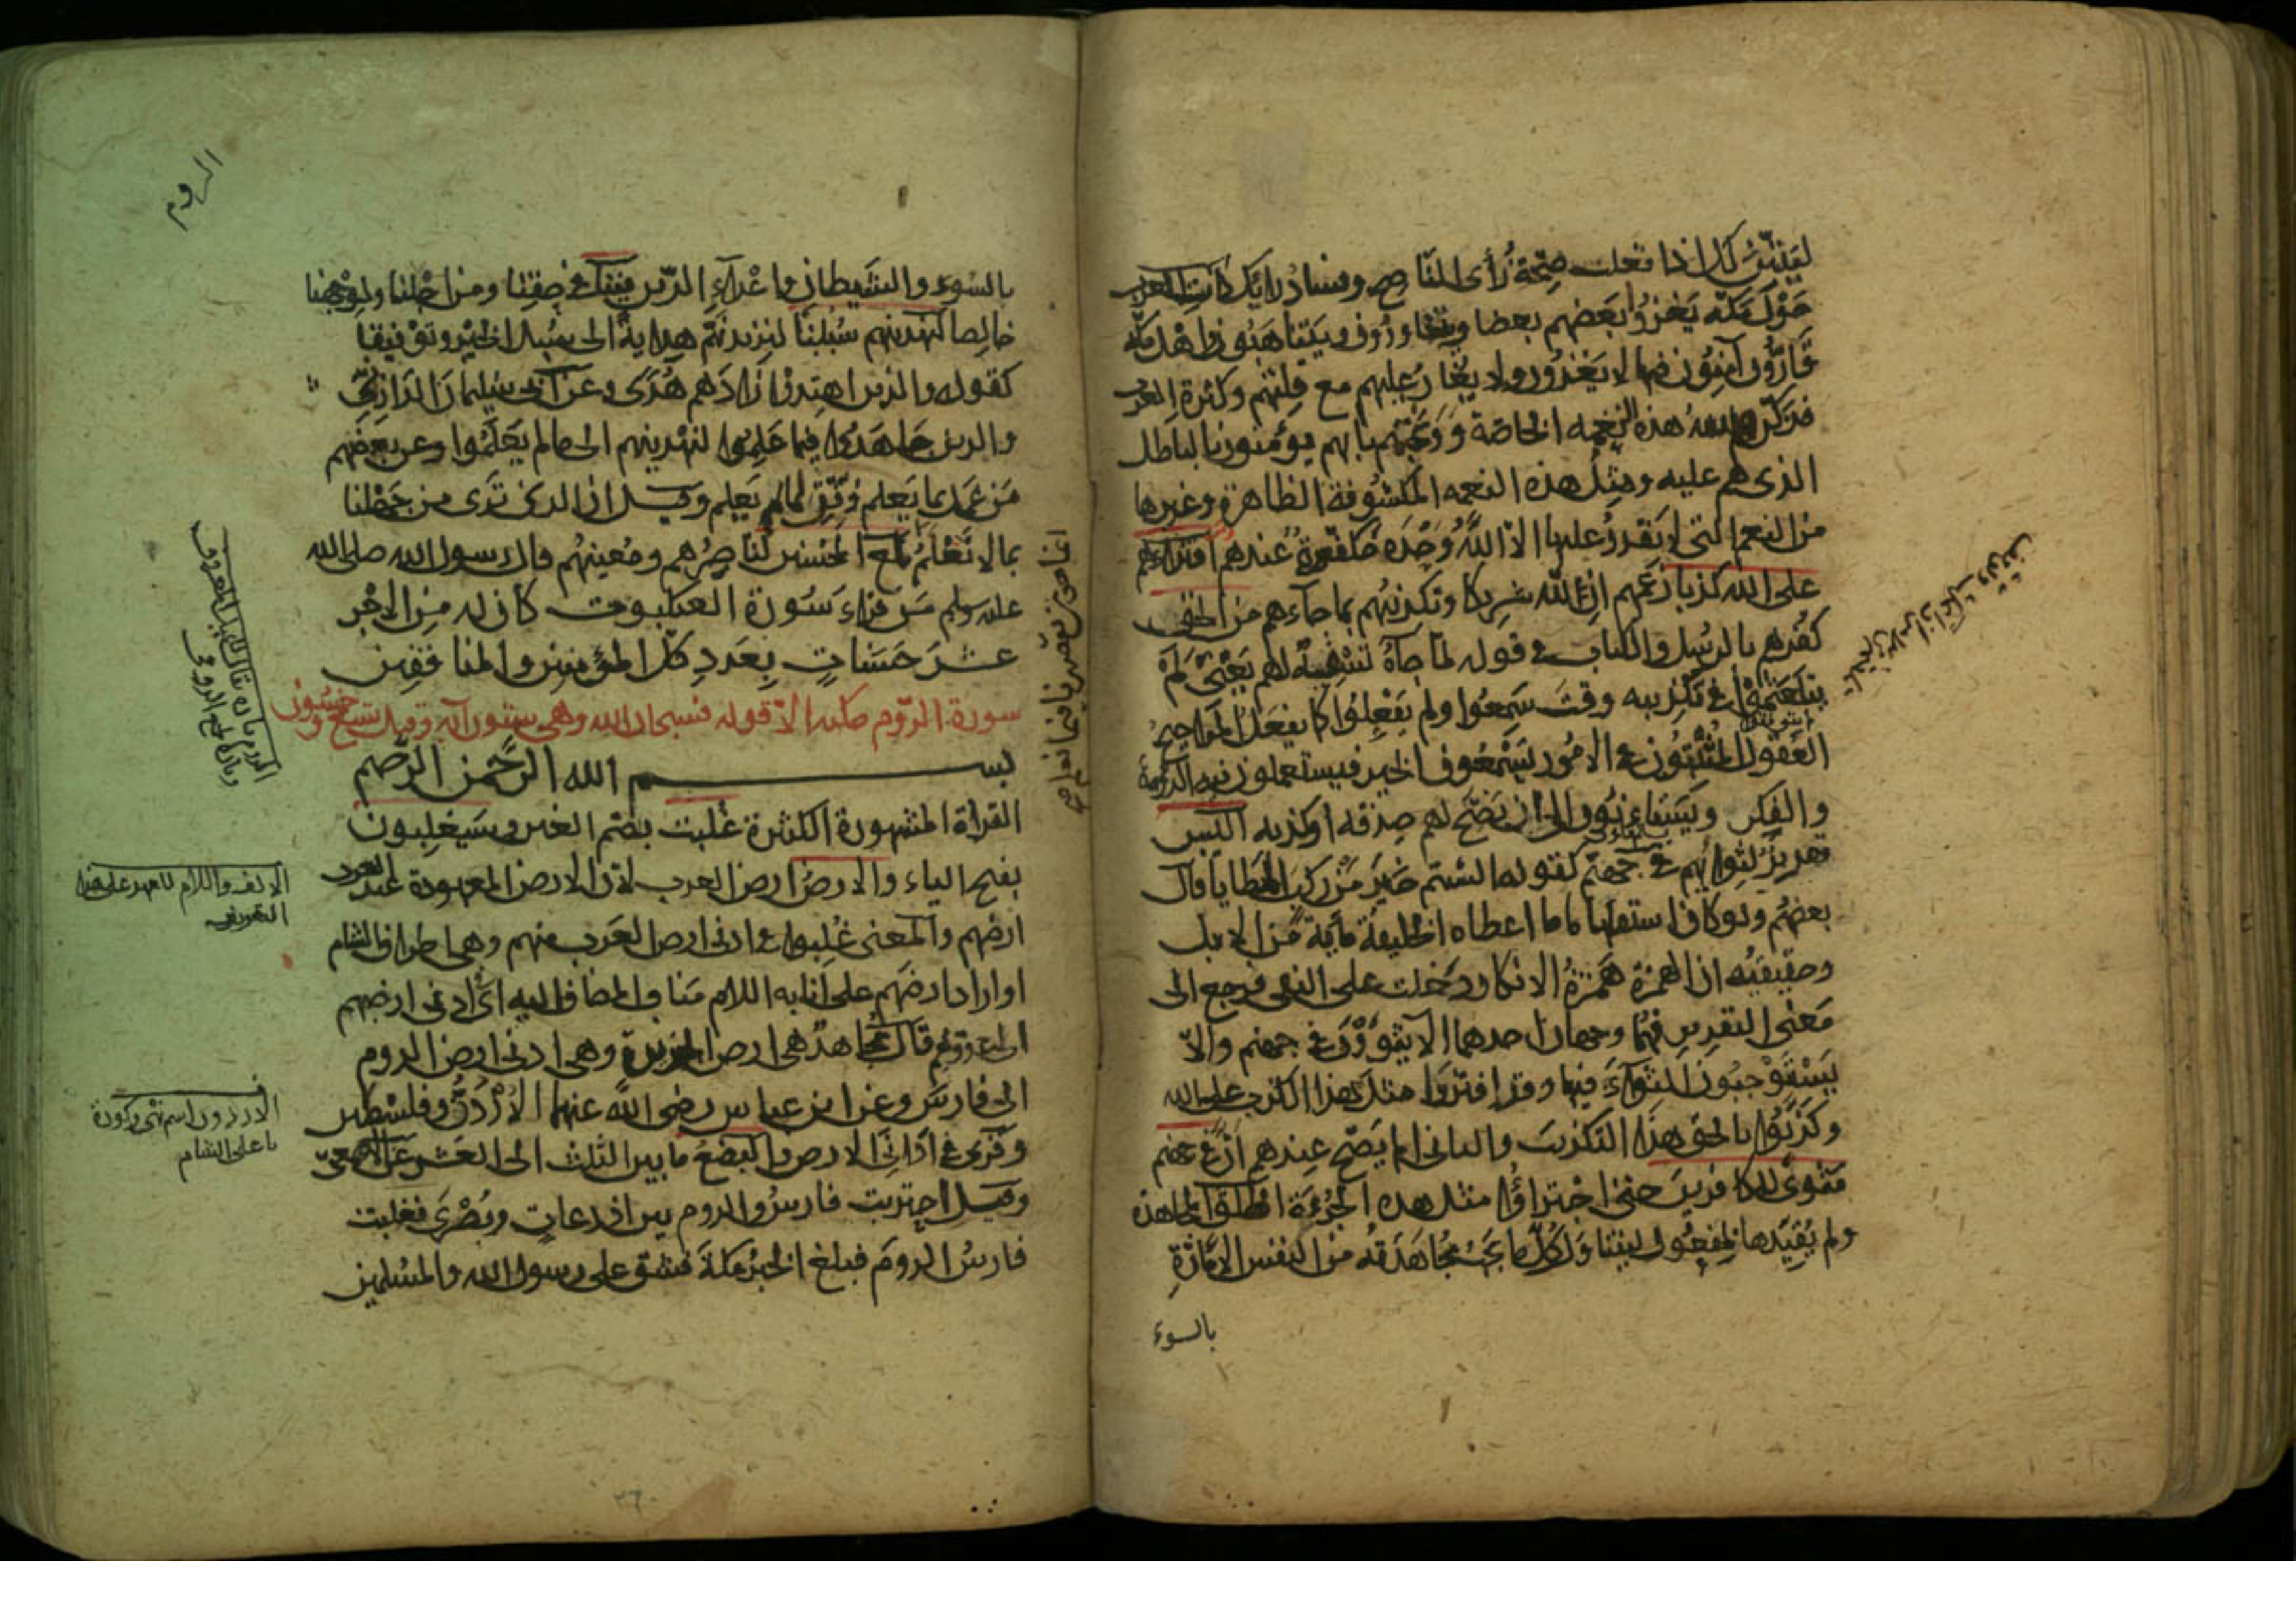 ليتبين لك اذا فعلت صحة رأى الناصح وفساد رأيك كانت العرب
حول مكة يغزو بعضهم بعضا ويتغاورون ويتناهبون واهل مكة
قارّون آمنون فيها لا يغزون ولا يغار عليهم مع قلتهم وكثرة العرب
فذكّرهم الله هذه النعمة الخاصة ووبّخهم بانهم يؤمنون بالباطل
الذى هم عليه ومثل هذه النعمه المكشوفة الظاهرة وغيرها
من النعم التى لا يقدر عليها الا الله وحده مكفورة عندهم افتراءهم
على الله كذبا زعمهم ان لله شريكا وتكذيبهم بما جاءهم من الحق
كفرهم بالرسل والكتاب فى قوله لما جاءه تسفيه لهم يعنى لم
يتلعثموا فى تكذيبه وقت سمعوا ولم يفعلوا كما يفعل المراجيح
العقول المثبتون فى الامور يسمعون الخبر فيستعملون فيه الروية
والفكر ويستأنون الى ان يصح لهم صدقه او كذبه أليس
تقرير لثوائهم فى جهنم كقوله ألستم خير من ركب المطايا قال
بعضهم ولو كان استفهاما ما اعطاه الخليفة مأية من الابل
وحقيقته ان الهمزة همزة الانكار دخلت على النفى فرجع الى
معنى التقرير فهما وجهان احدهما الا يثوون فى جهنم والا
يستوجبون الثواء فيها وقد افتروا مثل هذا الكذب على الله
وكذبوا بالحق هذا التكذيب والثانى الم يصح عندهم ان فى جهنم
مثوى للكافرين حتى اجترؤا مثل هذه الجرءة اطلق المجاهدة
ولم يقيدها بمفعول ليتناول كل ما يجب مجاهدته من النفس الامارة
بالسوء
الروم
بالسوء والشيطان واعداء الدين فينا فى حقنا ومن اجلنا ولوجهنا
خالصا لنهدينهم سبلنا لنزيدنهم هداية الى سبيل الخير وتوفيقا
كقوله والذين اهتدوا زادهم هدى وعن ابى سليمان الدارانى
والذين جاهدوا فيما علموا لنهدينهم الى ما لم يعلموا وعن بعضهم
من عمل بما يعلم وفّق لما لم يعلم وقيل ان الذى نرى من جهلنا
بما لا نعلم لمع المحسنين لناصرهم ومعينهم قال رسول الله صلى الله
عليه وسلم من قراء سورة العنكبوت كان له من الاجر
عشر حسنات بعدد كل المؤمنين والمنافقين
سورة الروم مكيه الا قوله فسبحان الله وهى ستون آية وقيل تسع وخمسون
بسم الله الرحمن الرحيم
القراة المشهورة الكثيرة غلبت بضم الغين وسيغلبون
بفتح الياء والارض ارض العرب لان الارض المعهودة عند العرب
ارضهم والمعنى غلبوا فى ادنى ارض العرب منهم وهى اطراف الشام
او اراد ارضهم على انابة اللام مناب المضاف اليه اى فى ادنى ارضهم
الى عدوهم قال مجاهد هى ارض الجزيرة وهى ادنى ارض الروم
الى فارس وعن ابن عباس رضى الله عنهما الاردن وفلسطين
وقرى فى ادانى الارض والبضع ما بين الثلث الى العشر عن الاصمعى
وقيل احتربت فارس والروم بين اذرعات وبصرى فغلبت
فارس الروم فبلغ الخبر مكة فشق على رسول الله والمسلمين
الالف واللام للعهد على هذا
التعريف
الاردن اسم نهر وكورة
باعلى الشام